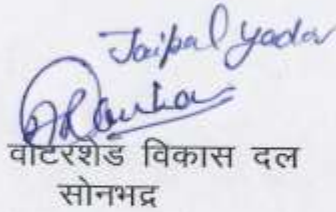 Jaipal Yadav
वाटरशेड विकास दल
सोनभद्र